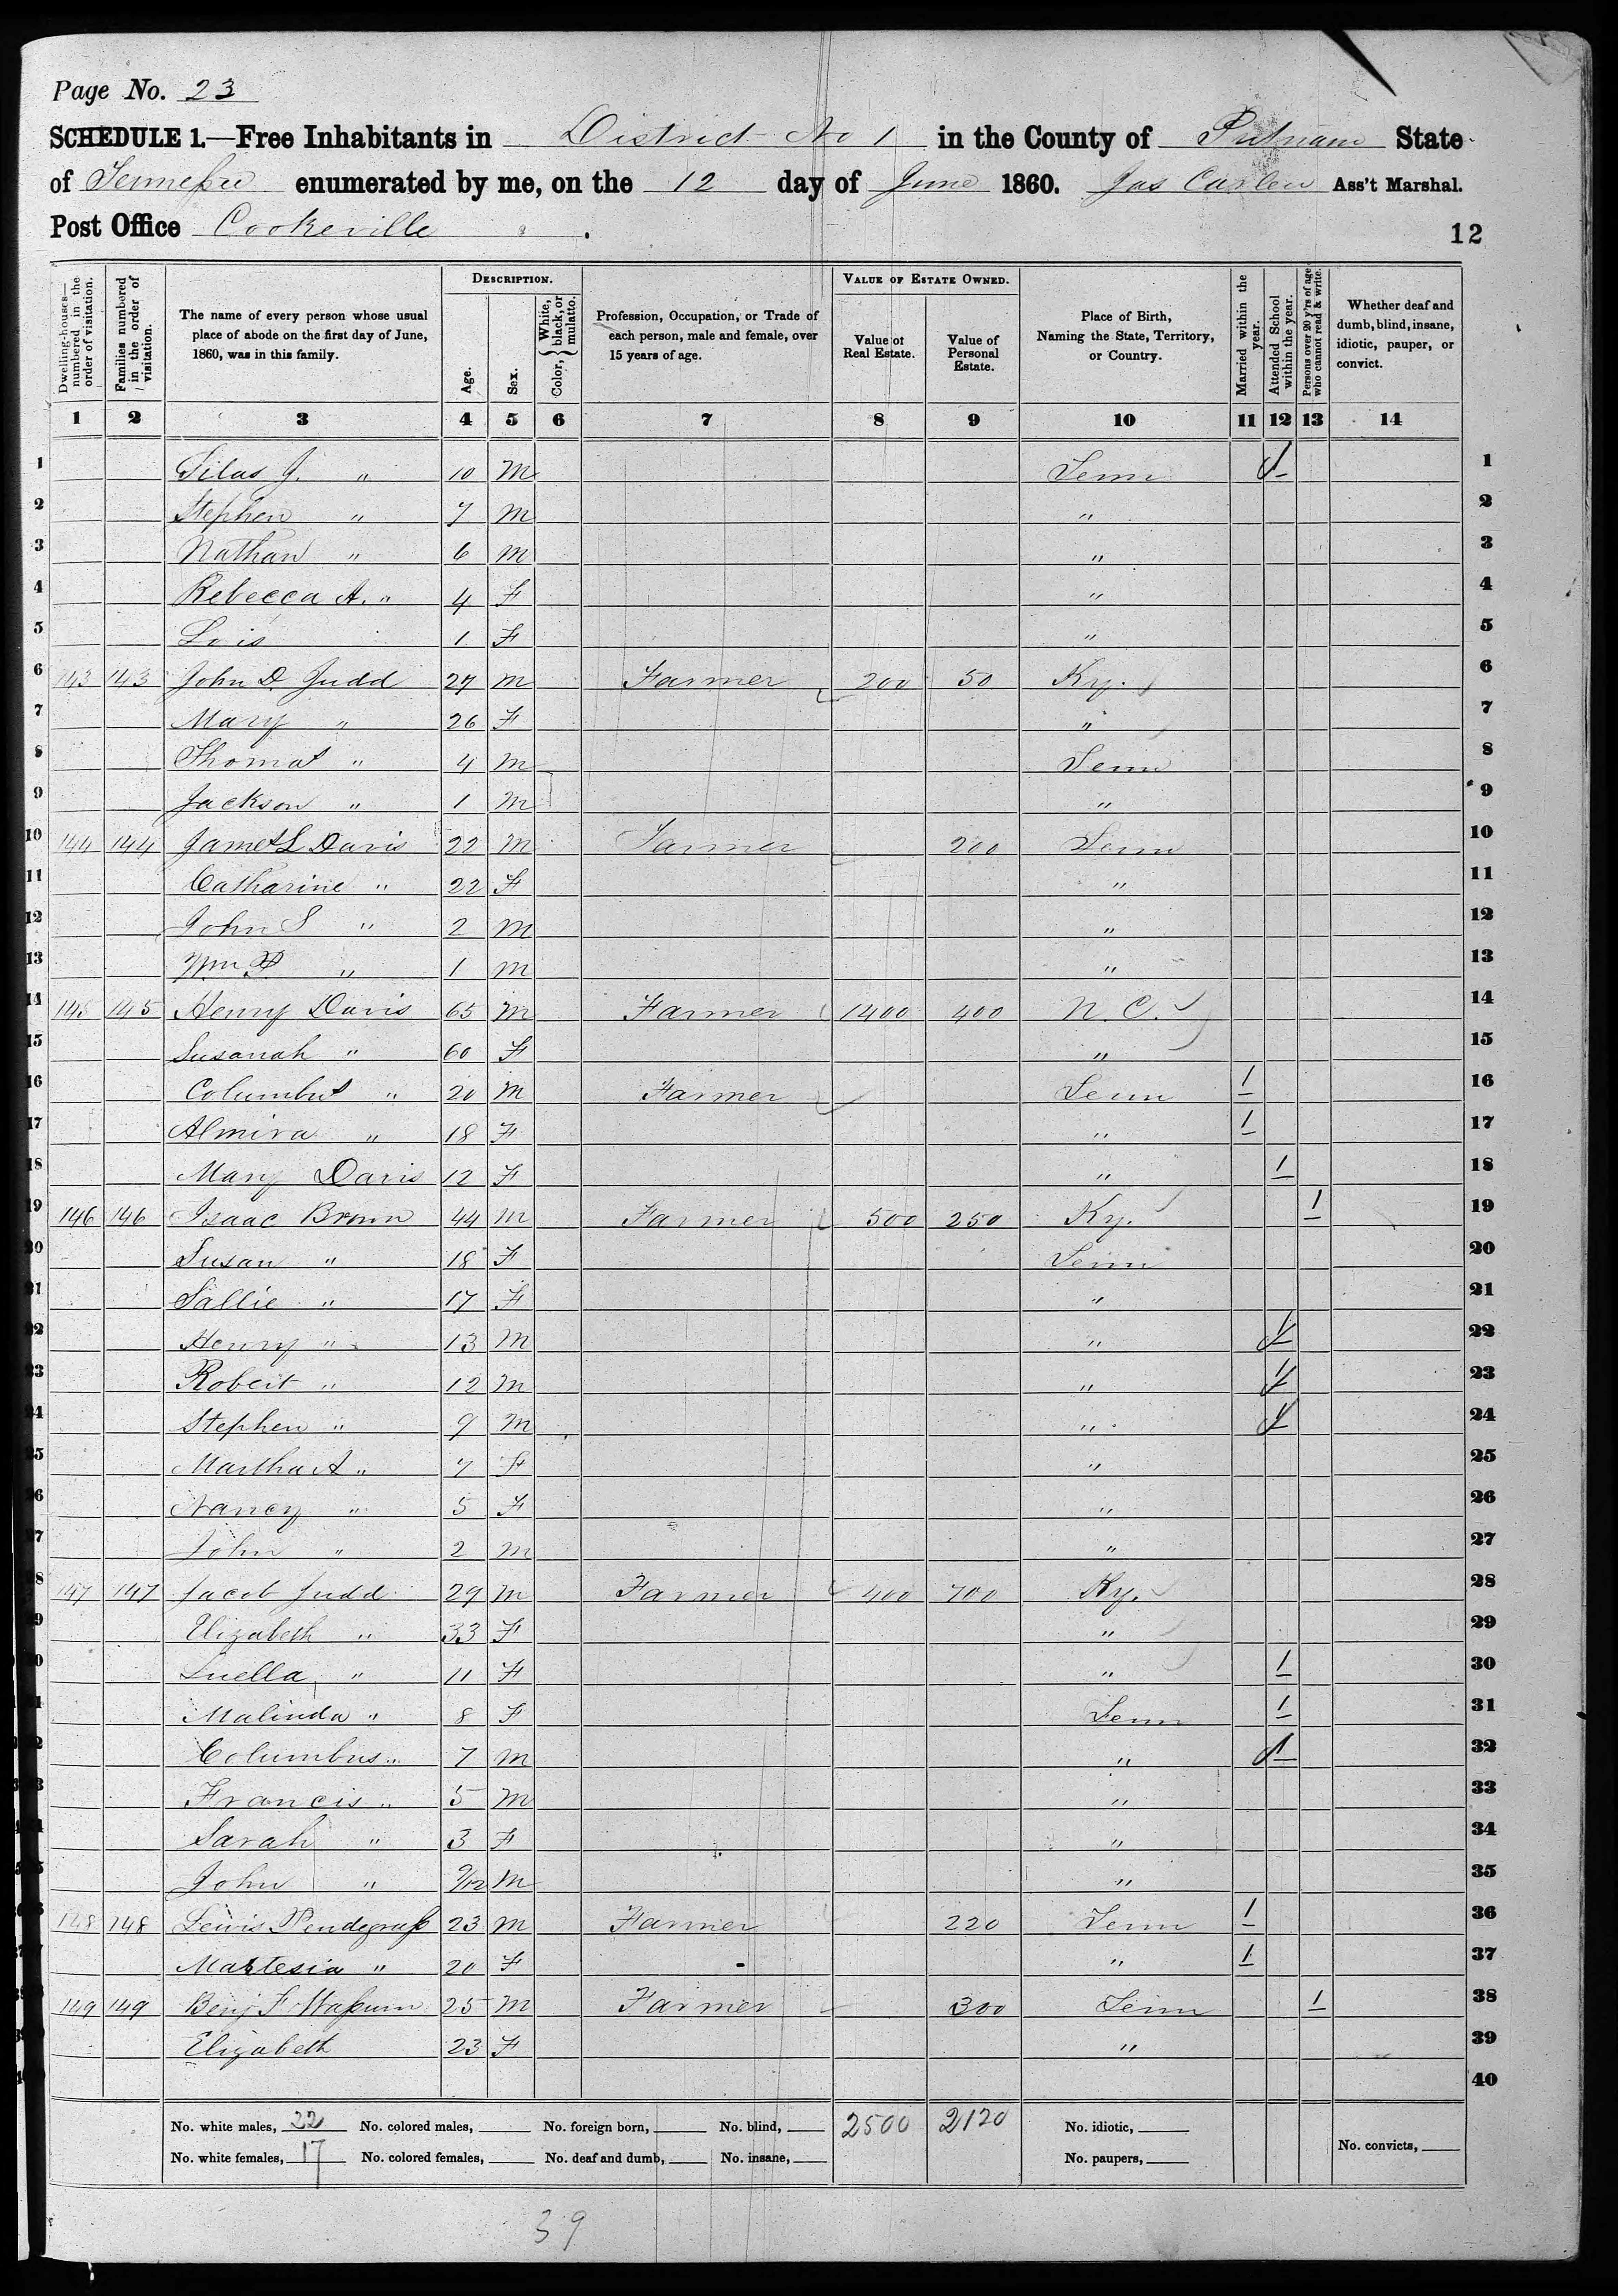 Page No. 23
SCHEDULE 1.—Free Inhabitants in District No 1 in the County of Putnam State
of Tennessee enumerated by me, on the 12 day of June 1860. Jas Carlen Ass't Marshal.
Post Office Cookeville .
12
Dwelling-houses—numbered in the order of visitation. Families numbered in the order of visitation. The name of every person whose usual place of abode on the first day of June, 1860, was in this family. DESCRIPTION. Age. Sex. Color, { White, black, or mulatto. Profession, Occupation, or Trade of each person, male and female, over 15 years of age. VALUE OF ESTATE OWNED. Value of Real Estate. Value of Personal Estate. Place of Birth, Naming the State, Territory, or Country. Married within the year. Attended School within the year. Persons over 20 y'rs of age who cannot read & write. Whether deaf and dumb, blind, insane, idiotic, pauper, or convict.
1 2 3 4 5 6 7 8 9 10 11 12 13 14
1 Silas J. " 10 M Tenn 1 1
2 Stephen " 7 M " 2
3 Nathan " 6 M " 3
4 Rebecca A. " 4 F " 4
5 Lois 1 F " 5
6 143 143 John D Judd 27 M Farmer 200 50 Ky. 6
7 Mary " 26 F " 7
8 Thomas " 4 M Tenn 8
9 Jackson " 1 M " 9
10 144 144 James L Davis 22 M Farmer 200 Tenn 10
11 Catharine " 22 F " 11
12 John S " 2 M " 12
13 Wm P " 1 M " 13
14 145 145 Henry Davis 65 M Farmer 1400 400 N. C. 14
15 Susanah " 60 F " 15
16 Columbus " 20 M Farmer Tenn 1 16
17 Almira " 18 F " 1 17
18 Mary Davis 12 F " 1 18
19 146 146 Isaac Brown 44 M Farmer 500 250 Ky. 1 19
20 Susan " 18 F Tenn 20
21 Sallie " 17 F " 21
22 Henry " 13 M " 1 22
23 Robert " 12 M " 1 23
24 Stephen " 9 M " 1 24
25 Martha A " 7 F " 25
26 Nancy " 5 F " 26
27 John " 2 M " 27
28 147 147 Jacob Judd 29 M Farmer 400 700 Ky. 28
29 Elizabeth " 33 F " 29
30 Luella " 11 F " 1 30
31 Malinda " 8 F Tenn 1 31
32 Columbus " 7 M " 1 32
33 Francis " 5 M " 33
34 Sarah " 3 F " 34
35 John " 9/12 M " 35
36 148 148 Lewis Pendegrass 23 M Farmer 220 Tenn 1 36
37 Martesia " 20 F " 1 37
38 149 149 Benj F 25 M Farmer 300 Tenn 1 38
39 Elizabeth 23 F " 39
40 40
No. white males, 22 No. colored males, No. foreign born, No. blind, 2500 2120 No. idiotic,
No. white females, 17 No. colored females, No. deaf and dumb, No. insane, No. paupers, No. convicts,
39